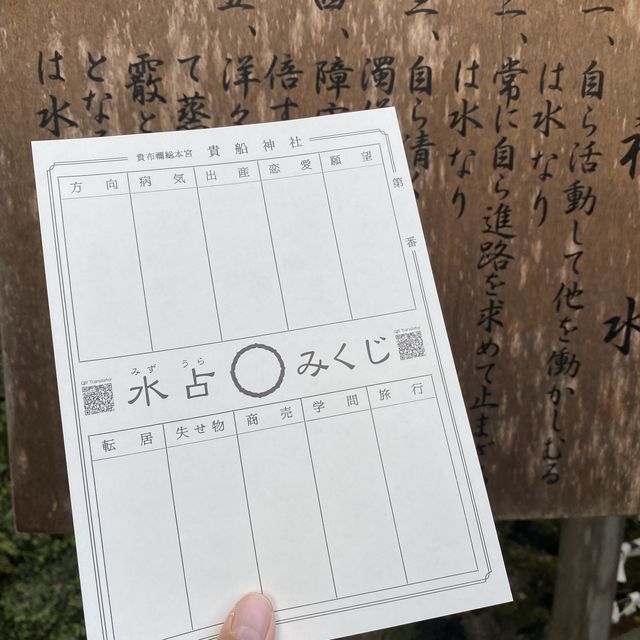 貴布禰総本宮 貴船神社
第 番
願望
恋愛
出産
病気
方向
QR Translator
みず うら
水占 みくじ
QR Translator
旅行
学問
商売
失せ物
転居
一、自ら活動して他を働かしむる
は水なり
二、常に自ら進路を求めて止まざ
は水なり
三、自ら清く
四、障
倍す
五、洋々
て蒸
霰と
となる
は水
水